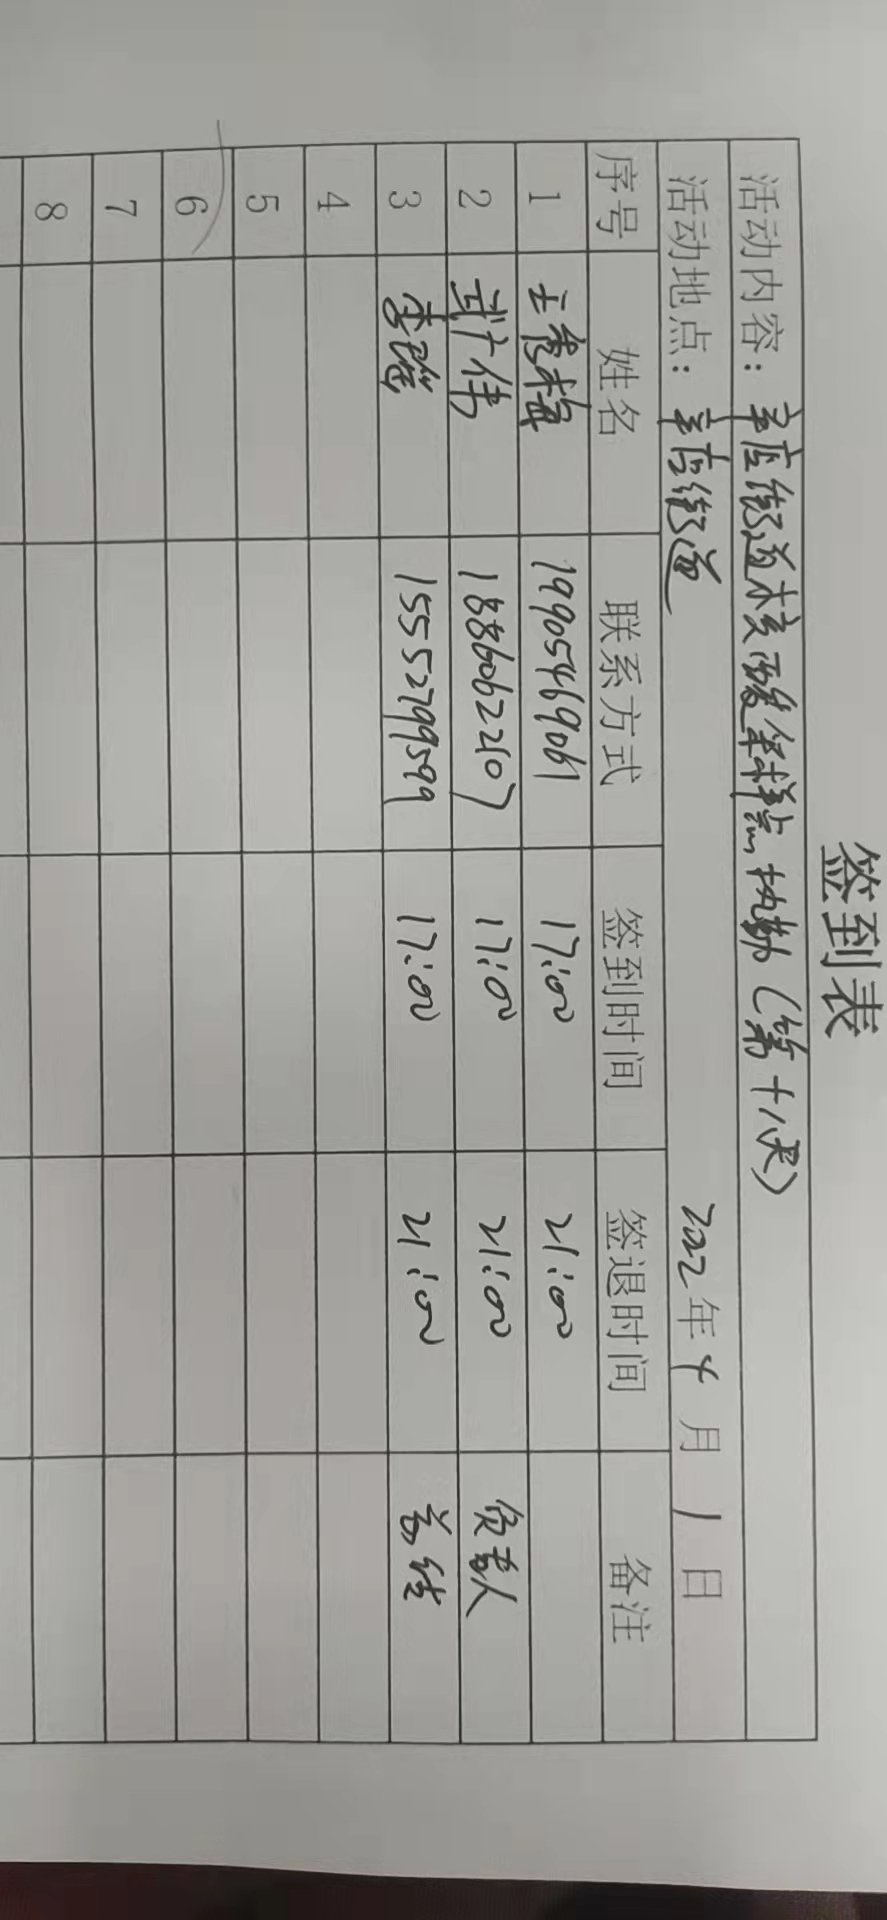 签到表
活动内容：辛店街道核酸采样点执勤（第十八天）
活动地点：辛店街道 2022年4月1日
序号 姓名 联系方式 签到时间 签退时间 备注
1 王秀梅 19905469061 17:00 21:00
2 武广伟 18860622107 17:00 21:00 负责人
3 李瑶 15552799599 17:00 21:00
4
5
6
7
8